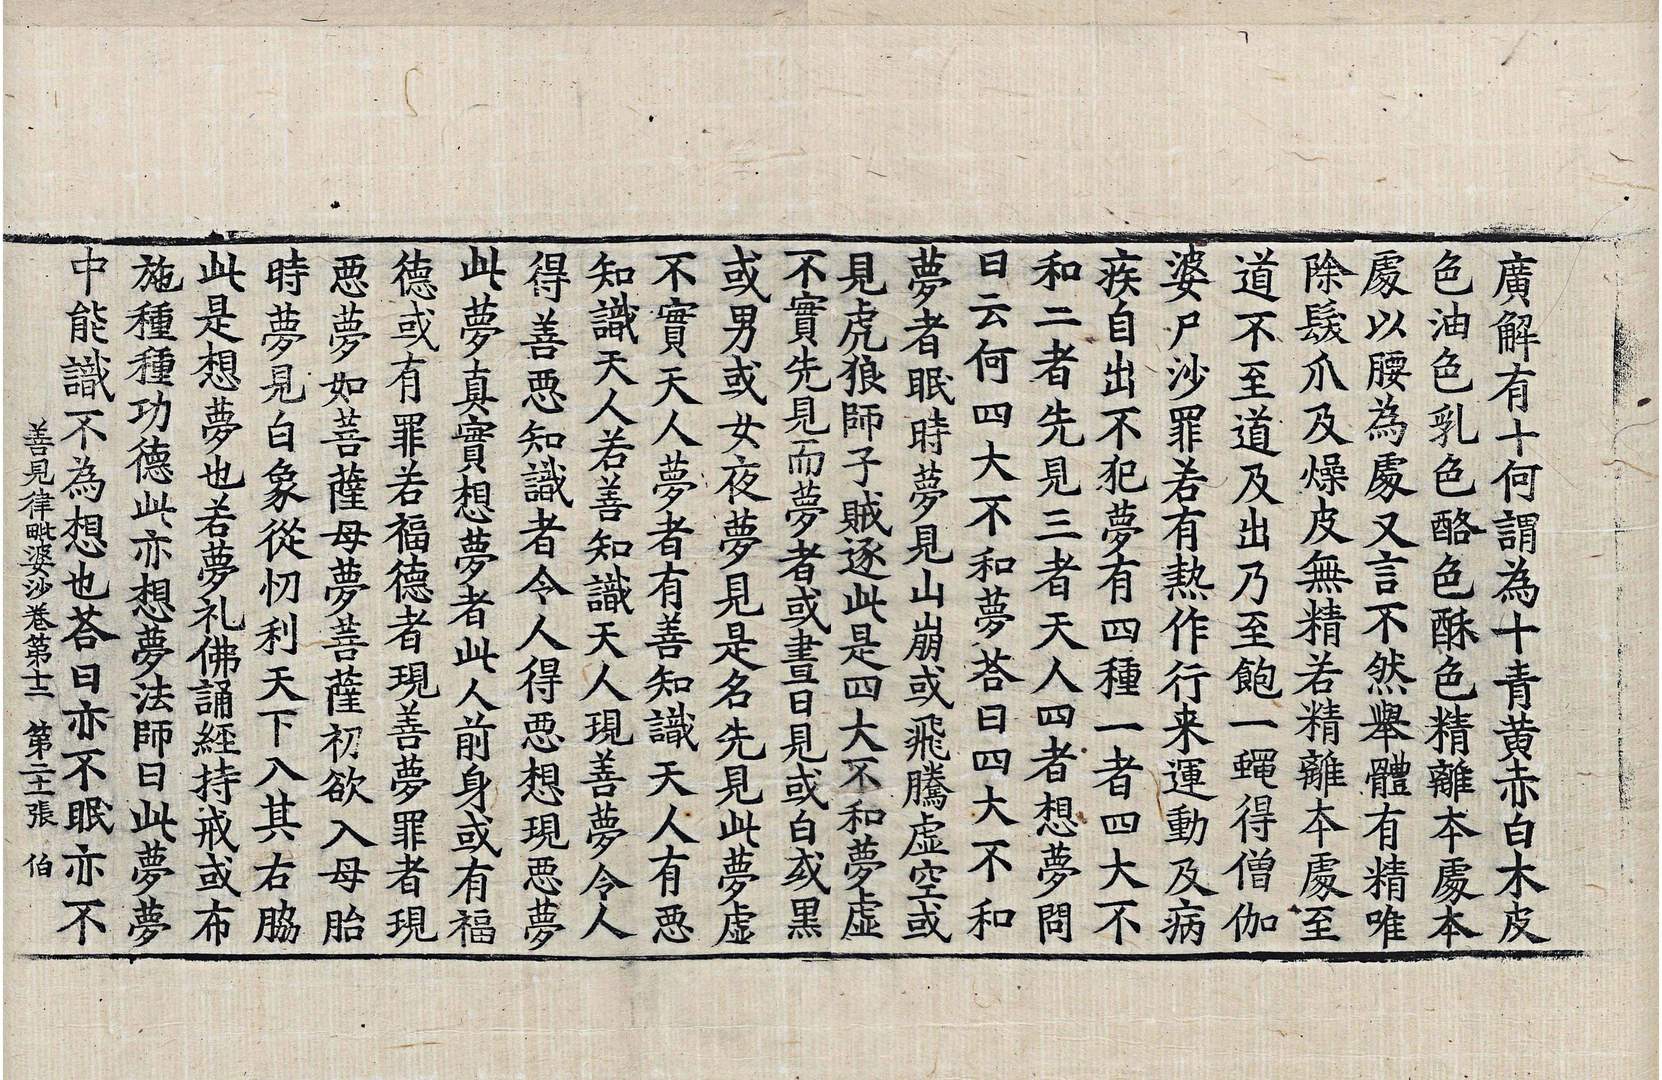 廣解有十何謂為十青黃赤白木皮
色油色乳色酪色酥色精離本處本
處以腰為處又言不然舉體有精唯
除髮爪及燥皮無精若精離本處至
道不至道及出乃至飽一蠅得僧伽
婆尸沙罪若有熱作行来運動及病
疾自出不犯夢有四種一者四大不
和二者先見三者天人四者想夢問
曰云何四大不和夢荅曰四大不和
夢者眠時夢見山崩或飛騰虛空或
見虎狼師子賊逐此是四大不和夢虛
不實先見而夢者或晝日見或白或黑
或男或女夜夢見是名先見此夢虛
不實天人夢者有善知識天人有惡
知識天人若善知識天人現善夢令人
得善惡知識者令人得惡想現惡夢
此夢真實想夢者此人前身或有福
德或有罪若福德者現善夢罪者現
惡夢如菩薩母夢菩薩初欲入母胎
時夢見白象從忉利天下入其右脇
此是想夢也若夢礼佛誦經持戒或布
施種種功德此亦想夢法師曰此夢夢
中能識不為想也荅曰亦不眠亦不
善見律毗婆沙卷第十二 第二十一張 伯